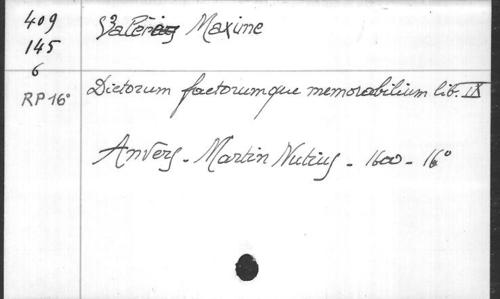 409
145
6
RP 16°
Valère Maxime
Dictorum factorumque memorabilium lib. IX
Anvers - Martin Nutius - 1600 - 16°